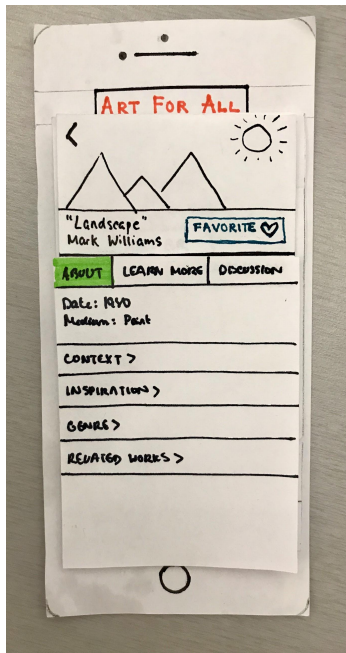 ART FOR ALL
"Landscape"
Mark Williams
FAVORITE
ABOUT LEARN MORE DISCUSSION
Date: 1950
Medium: Paint
CONTEXT >
INSPIRATION >
GENRE >
RELATED WORKS >